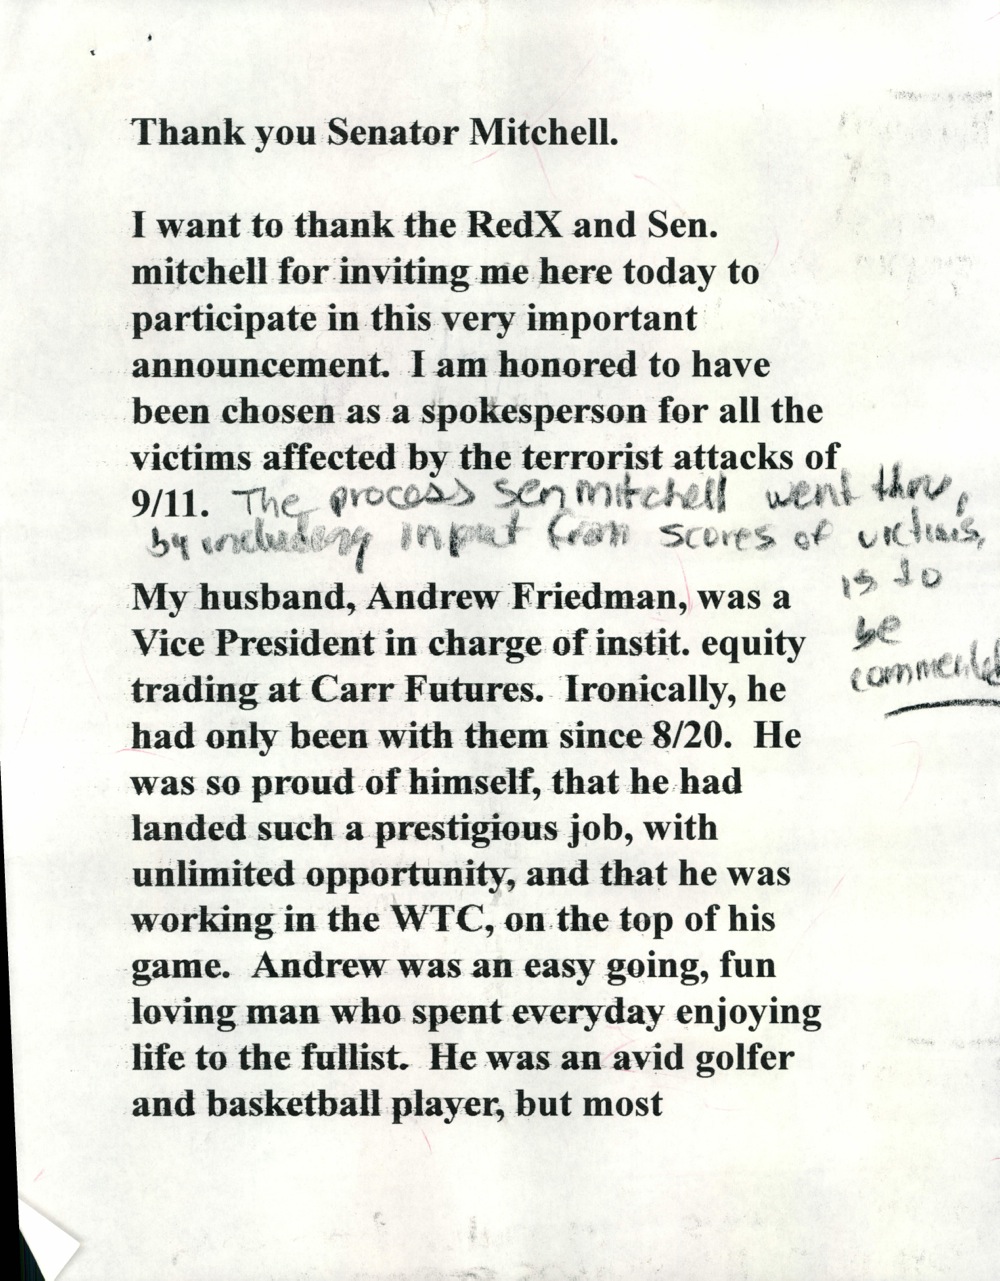 Thank you Senator Mitchell.
I want to thank the RedX and Sen.
mitchell for inviting me here today to
participate in this very important
announcement. I am honored to have
been chosen as a spokesperson for all the
victims affected by the terrorist attacks of
9/11. The process Sen mitchell went thru,
by including input from scores of victims,
is to
be
commended
My husband, Andrew Friedman, was a
Vice President in charge of instit. equity
trading at Carr Futures. Ironically, he
had only been with them since 8/20. He
was so proud of himself, that he had
landed such a prestigious job, with
unlimited opportunity, and that he was
working in the WTC, on the top of his
game. Andrew was an easy going, fun
loving man who spent everyday enjoying
life to the fullist. He was an avid golfer
and basketball player, but most